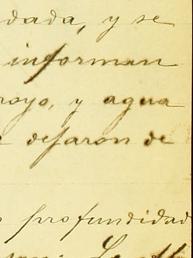 dada, y se
informan
royo, y agua
dejaron de
profundidad